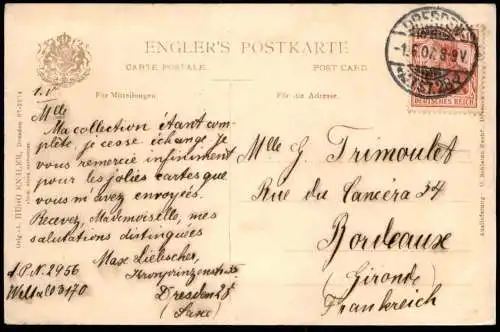 ENGLER'S POSTKARTE
CARTE POSTALE.
POST CARD.
Für Mitteilungen.
Für die Adresse.
DRESDEN
-1.6.07. 8-9V.
DEUTSCHES REICH
Mlle
Ma collection étant com-
plète, je cesse échange. Je
vous remercie infiniment
pour les jolies cartes que
vous m'avez envoyées.
Recevez, Mademoiselle, mes
salutations distinguées
Max Liebscher,
Kronprinzenstr.
Dresden
(Saxe)
J.P.N. 2956
Welt 3170
Mlle G. Trimoulet
Rue du Cancéra 34
Bordeaux
(Gironde)
Frankreich
HUGO ENGLER, Dresden
Auslieferung